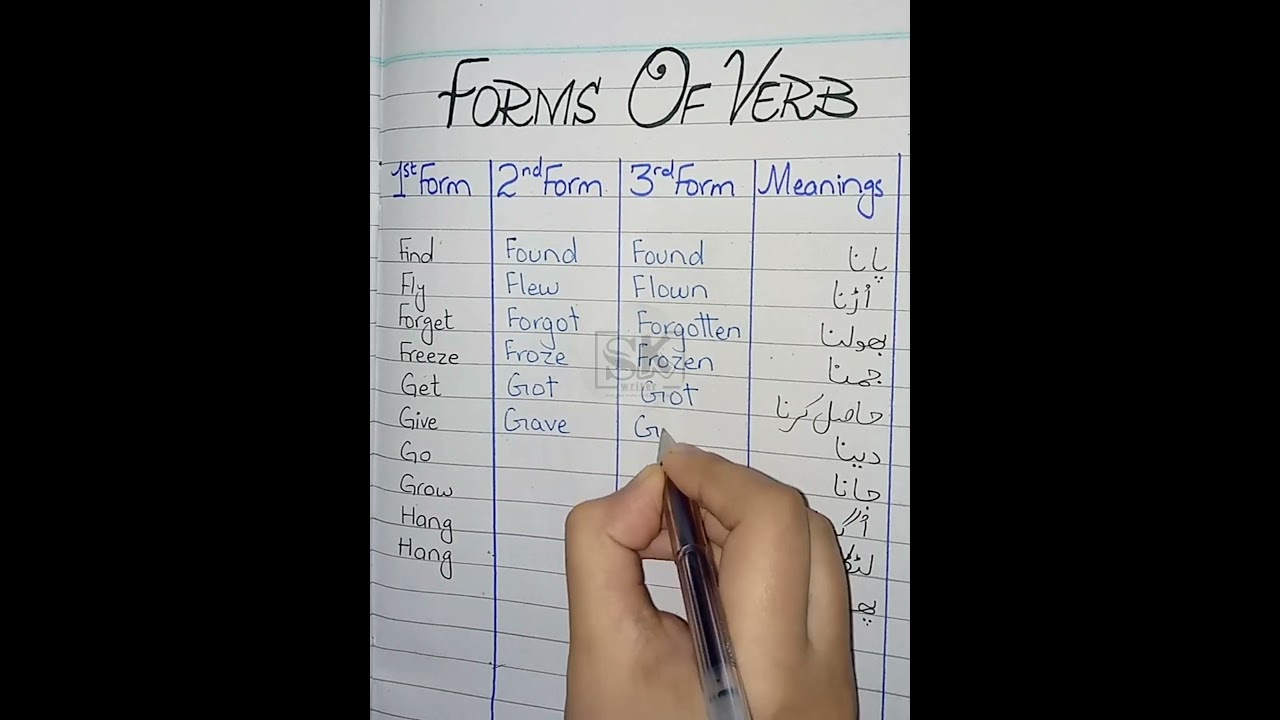 FORMS OF VERB
1st Form 2nd Form 3rd Form Meanings
Find Found Found پانا
Fly Flew Flown اُڑنا
Forget Forgot Forgotten بھولنا
Freeze Froze Frozen جمنا
Get Got Got حاصل کرنا
Give Gave G دینا
Go جانا
Grow
Hang
Hang
SK
writer